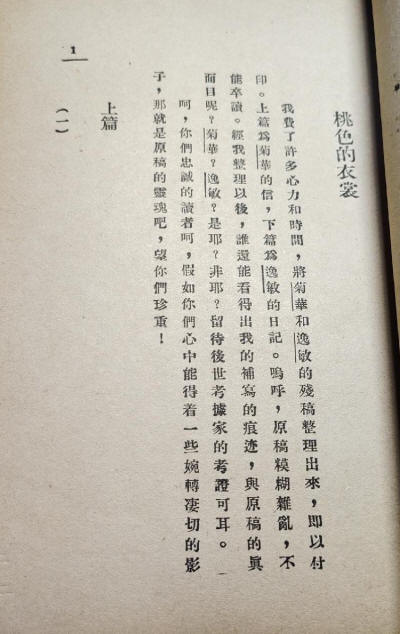 桃色的衣裳
我費了許多心力和時間，將菊華和逸敏的殘稿整理出來，即以付
印。上篇爲菊華的信，下篇爲逸敏的日記。嗚呼，原稿糢糊雜亂，不
能卒讀。經我整理以後，誰還能看得出我的補寫的痕迹，與原稿的眞
面目呢？菊華？逸敏？是耶？非耶？留待後世考據家的考證可耳。
呵，你們忠誠的讀者呵，假如你們心中能得着一些婉轉凄切的影
子，那就是原稿的靈魂吧，望你們珍重！
上篇
（一）
1